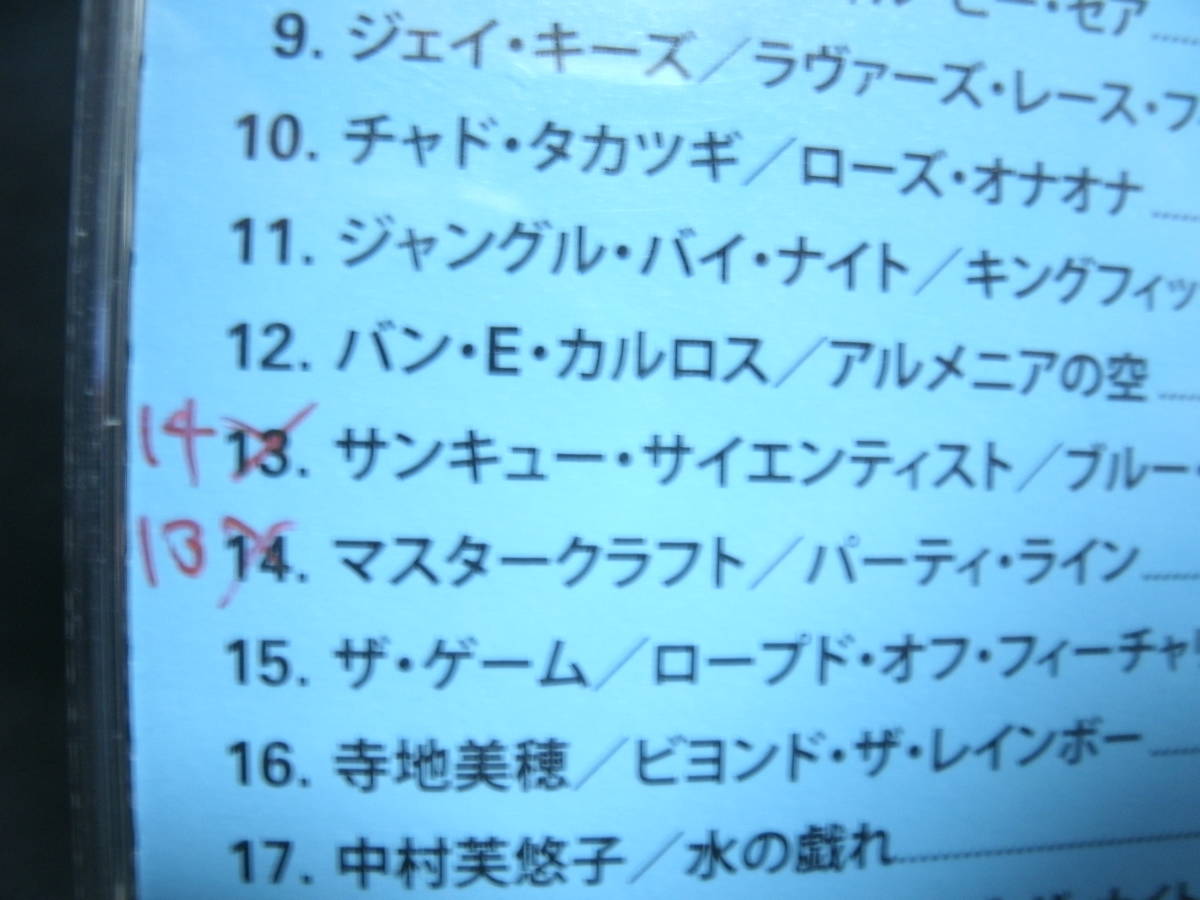 ビー・セア
9. ジェイ・キーズ／ラヴァーズ・レース・フ
10. チャド・タカツギ／ローズ・オナオナ
11. ジャングル・バイ・ナイト／キングフィッ
12. バン・E・カルロス／アルメニアの空
14 13. サンキュー・サイエンティスト／ブルー・
13 14. マスタークラフト／パーティ・ライン
15. ザ・ゲーム／ロープド・オフ・フィーチャ
16. 寺地美穂／ビヨンド・ザ・レインボー
17. 中村芙悠子／水の戯れ